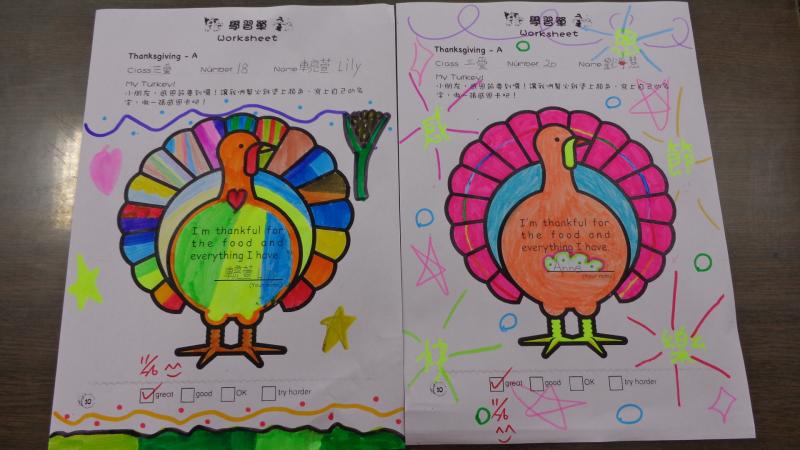 學習單
Worksheet
Thanksgiving - A
Class 三愛 Number 18 Name Lily
My Turkey!
小朋友，感恩節要到囉！讓我們幫火雞塗上顏色，寫上自己的名
字，做一張感恩卡吧！
I'm thankful for
the food and
everything I have.
(Your name)
11/6
great good OK try harder
10
學習單
Worksheet
Thanksgiving - A
Class 三愛 Number 20 Name
My Turkey!
小朋友，感恩節要到囉！讓我們幫火雞塗上顏色，寫上自己的名
字，做一張感恩卡吧！
感
恩
節
I'm thankful for
the food and
everything I have.
Anne
(Your name)
快
樂
great good OK try harder
10
11/6